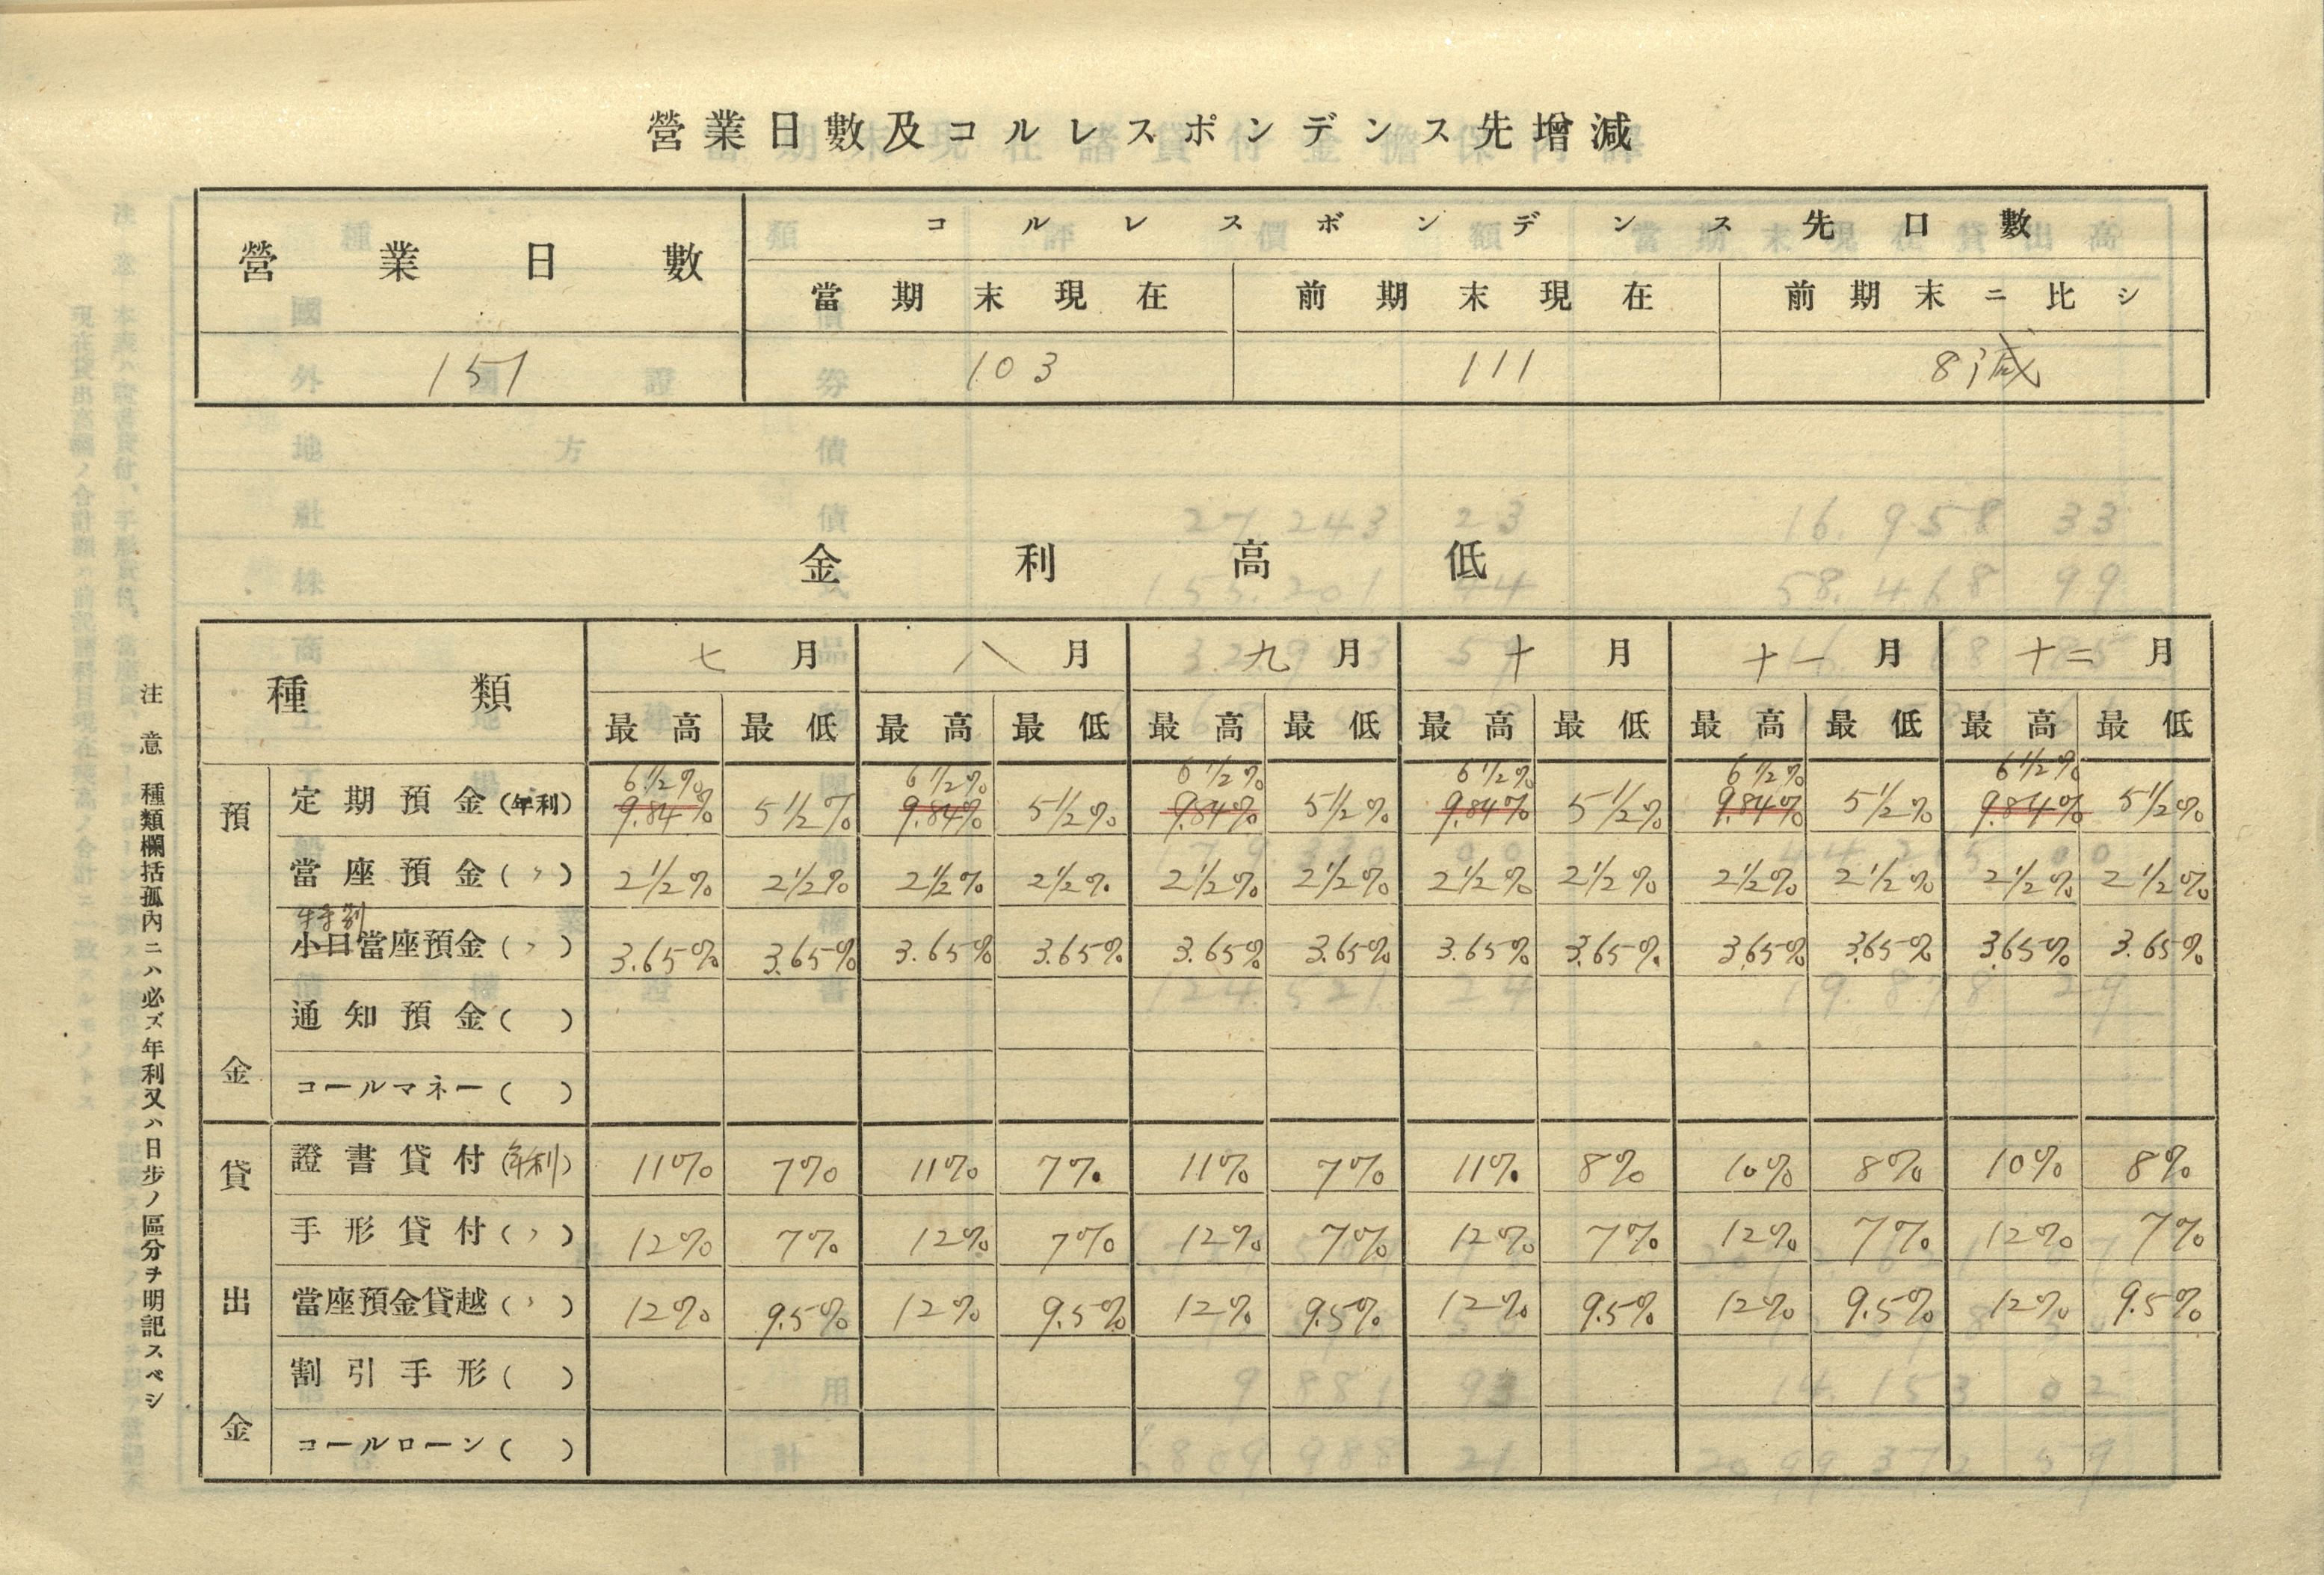 營業日數及コルレスポンデンス先增減
營業日數 コルレスポンデンス先口數
當期末現在 前期末現在 前期末ニ比シ
157 103 111 8減
金利高低
種類 七月 八月 九月 十月 十一月 十二月
最高 最低 最高 最低 最高 最低 最高 最低 最高 最低 最高 最低
預金
6 1/2% 6 1/2% 6 1/2% 6 1/2% 6 1/2% 6 1/2%
定期預金(年利) 9.84% 5 1/2% 9.84% 5 1/2% 9.84% 5 1/2% 9.84% 5 1/2% 9.84% 5 1/2% 9.84% 5 1/2%
當座預金(〃) 2 1/2% 2 1/2% 2 1/2% 2 1/2% 2 1/2% 2 1/2% 2 1/2% 2 1/2% 2 1/2% 2 1/2% 2 1/2% 2 1/2%
特別
小口當座預金(〃) 3.65% 3.65% 3.65% 3.65% 3.65% 3.65% 3.65% 3.65% 3.65% 3.65% 3.65% 3.65%
通知預金( )
コールマネー( )
貸出金
證書貸付(年利) 11% 7% 11% 7% 11% 7% 11% 8% 10% 8% 10% 8%
手形貸付(〃) 12% 7% 12% 7% 12% 7% 12% 7% 12% 7% 12% 7%
當座預金貸越(〃) 12% 9.5% 12% 9.5% 12% 9.5% 12% 9.5% 12% 9.5% 12% 9.5%
割引手形( )
コールローン( )
注意 種類欄括孤內ニハ必ズ年利又ハ日步ノ區分ヲ明記スベシ